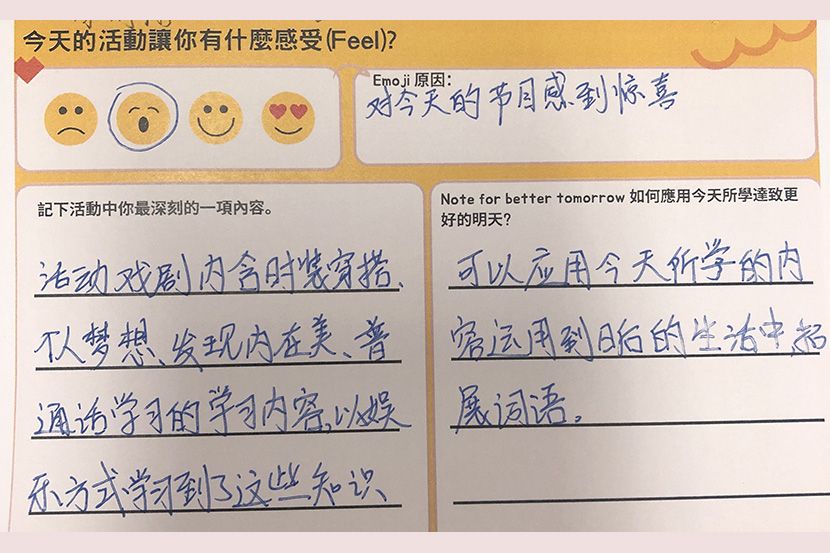 今天的活動讓你有什麼感受(Feel)?
Emoji 原因:
对今天的节目感到惊喜
記下活動中你最深刻的一項內容。
活动戏剧内含时装穿搭、
个人梦想、发现内在美、普
通话学习的学习内容,以娱
乐方式学习到了这些知识
Note for better tomorrow 如何應用今天所學達致更
好的明天?
可以应用今天所学的内
容运用到日后的生活中,拓
展词语。